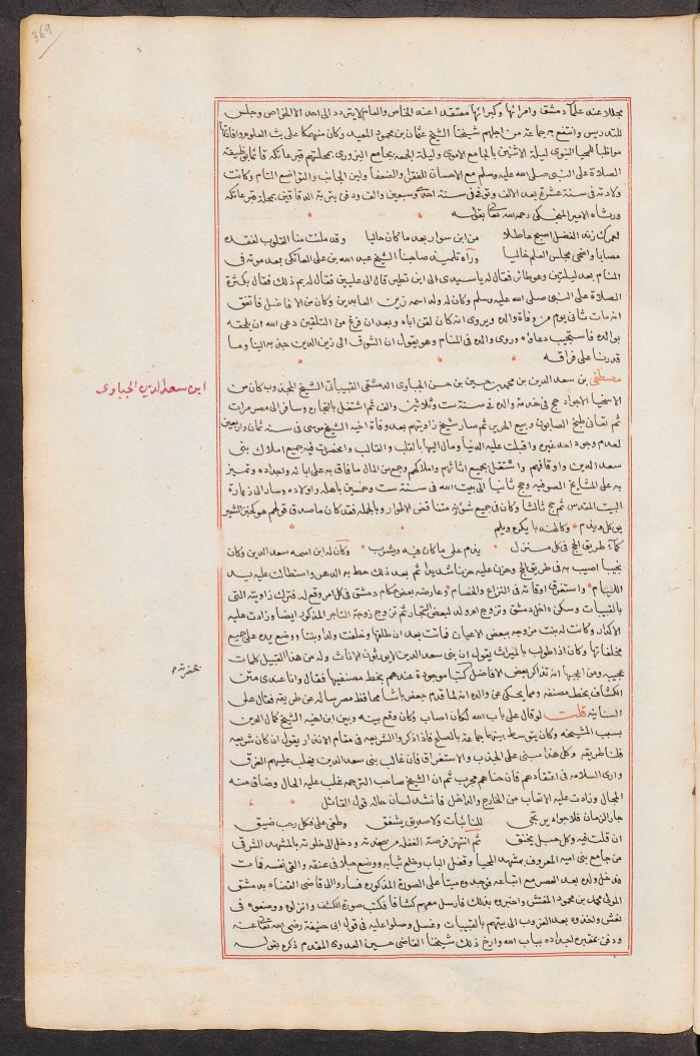 369
مجللا عند علماء دمشق وامرائها وكبرائها معتقدا عند الخاص والعام لا يتردد الى احد الا الخواص وجلس
للتدريس وانتفع به جماعة من اجلهم شيخنا الشيخ عثمان بن محمود المعيد وكان منهمكا على بث العلوم وافادتها
مواظبا للمحيا النبوى ليلة الاثنين بالجامع الاموى وليلة الجمعة بجامع البزورى بمحلتهم قبر عاتكه قائما بوظيفة
الصلاة على النبى صلى الله عليه وسلم مع الاحسان للفقرا والضعفا ولين الجانب والتواضع التام وكانت
ولادته فى سنة عشرة بعد الالف وتوفى فى سنة احدى وسبعين والف ودفن بتربة الدقاقين بمحلة قبر عاتكه
ورثاه الامير المنجكى رحمه الله تعالى بقوله
لعمرك زند الفضل اصبح عاطلا من ابن سوار بعد ما كان حاليا وقد ملئت منا القلوب لفقده
مصابا واضحى مجلس العلم خاليا ورآه تلميذه صاحبنا الشيخ عبد الله بن على العاتكى بعد موته فى
المنام بعد ليلتين وهو طائر فقال له يا سيدى الى اين تطير قال الى عليين فقال له بم ذلك فقال بكثرة
الصلاة على النبى صلى الله عليه وسلم وكان له ولد اسمه زين العابدين وكان من الافاضل فاتفق
انه مات ثانى يوم من وفاة والده ويروى انه كان لقن اباه وبعد ان فرغ من التلقين دعى الله ان يلحقه
بوالده فاستجيب دعاؤه وروى والده فى المنام وهو يقول ان الشوق الى زين الدين جذبه الينا وما
قدرنا على فراقه
ابن سعد الدين الجباوى
مصطفى بن سعد الدين بن محمد بن حسين بن حسن الجباوى الدمشقى القبيباتى الشيخ المجذوب كان من
الاسخيا الاجواد حج فى خدمة والده فى سنة ست وثلاثين والف ثم اشتغل بالتجاره وسافر الى مصر مرات
ثم تعانى طبخ الصابون وبيع الحرير ثم صار شيخ زاويتهم بعد وفاة اخيه الشيخ موسى فى سنة ثمان واربعين
لعدم وجود احد غيره واقبلت عليه الدنيا ومال اليها بالقلب والقالب وانحصرت فيه جميع املاك بنى
سعد الدين واوقافهم واشتغل بجميع اثاثهم واملاكهم وجمع من المال ما فاق به على ابائه واجداده وتميز
به على المشايخ الصوفيه وحج ثانيا الى بيت الله فى سنة ست وخمسين باهله واولاده وسار الى زيارة
البيت المقدس ثم حج ثالثا وكان فى جميع شؤنه متناقض الاطوار وبالجمله فقد كان ما صدق قولهم هو كخبز الشعير
يوكل ويذم وكالهند باكره ويلم
كماء طريق الحج فى كل منزل يذم على ما كان فيه ويشرب وكان له ابن اسمه سعد الدين وكان
نجيبا اصيب به فى طريق الحج وحزن عليه حزنا شديدا ثم بعد ذلك حط به الدهر واستطالت عليه يد
اللئيام واستغرق اوقاته فى النزاع والخصام وعارضه بعض حكام دمشق فى كل امر وقع له فترك زاويته التى
بالقبيبات وسكن داخل دمشق وتزوج ام ولد لبعض التجار ثم تزوج زوجة التاجر المذكور ايضا وزادت عليه
الاكدار وكانت له بنت مزوجه ببعض الاعيان فماتت بعد ان طلقها وخلفت ولدا وبنتا ووضع يده على جميع
مخلفاتها وكان اذا طولب بالميراث يقول ان بنى سعد الدين لا يورثون الاناث وله من هذا القبيل كلمات
بحضرته
عجيبه ومن اعجبها انه تذاكر بعض الافاضل كتبا موجودة عندهم بخط مصنفيها فقال وانا عندى متن
الكشاف بخط مصنفه ومما يحكى عن والده انه لما قدم جعفر باشا محافظ مصر ساله عن طريقه فقال على
السنانيه قلت لو قال على باب الله لكان اصاب وكان وقع بينه وبين ابن اخيه الشيخ كمال الدين
بسبب المشيخه وكان يتوسط بينهما جماعة بالصلح فاذا ذكروا الشريعه فى مقام الانذار يقول ان كان شريعه
فلنا طريقه وكل هذا مبنى على الجذب والاستغراق فان غالب بنى سعد الدين يغلب عليهم الغرق
وارى السلامه فى اعتقادهم فان حماهم مجرب ثم ان الشيخ صاحب الترجمه غلب عليه الحال وضاق منه
المجال وزادت عليه الاتعاب من الخارج والداخل فانشد لسان حاله قول القائل
جار الزمان فلا جواد يرتجى للنائبات ولا صديق يشفق وطغى على فكل رحب ضيق
ان قلت فيه وكل حبل يخنق ثم انتهز فرصة الغفله من خدمته ودخل الى خلوته بالمشهد الشرقى
من جامع بنى اميه المعروف بمشهد المحيا وقفل الباب وخلع ثيابه ووضع حبلا فى عنقه والقى نفسه فمات
فدخل ولده بعد العصر مع اتباعه فوجدوه ميتا على الصورة المذكوره فساروا الى قاضى القضاه بدمشق
المولى محمد بن محمود المفتش واخبروه بذلك فارسل معهم كشافا فكتب صورة الكشف وانزلوه ووضعوه فى
نعش واخذوه بعد الغروب الى بيتهم بالقبيبات وغسل وصلوا عليه فى قول ابى حنيفة رضى الله تعالى عنه
ودفن بمقبرة اجداده بباب الله وارخ ذلك شيخنا القاضى حسين العدوى المقدم ذكره بقوله